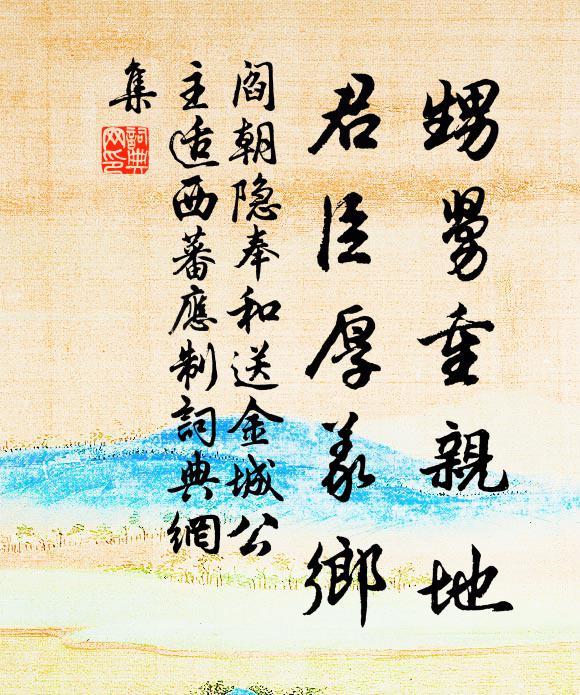 甥舅重親地
君臣厚義鄉
閻朝隱奉和送金城公
主适西蕃應制詞典網
集
詞典
网印